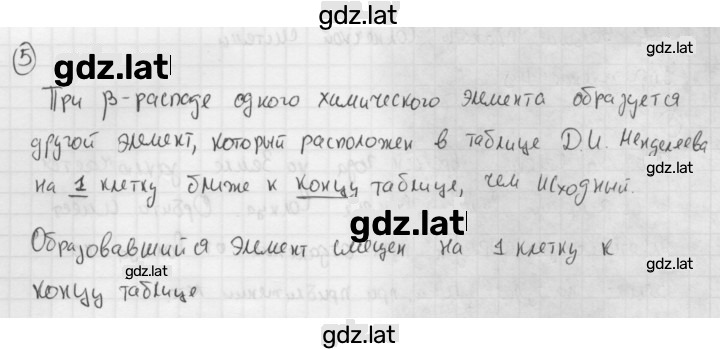 gdz.lat
5
gdz.lat
gdz.lat
При β-распаде одного химического элемента образуется
другой элемент, который расположен в таблице Д.И. Менделеева
gdz.lat
на 1 клетку ближе к концу таблице, чем исходный.
gdz.lat
Образовавшийся элемент смещен на 1 клетку к
gdz.lat
gdz.lat
концу таблице
gdz.lat